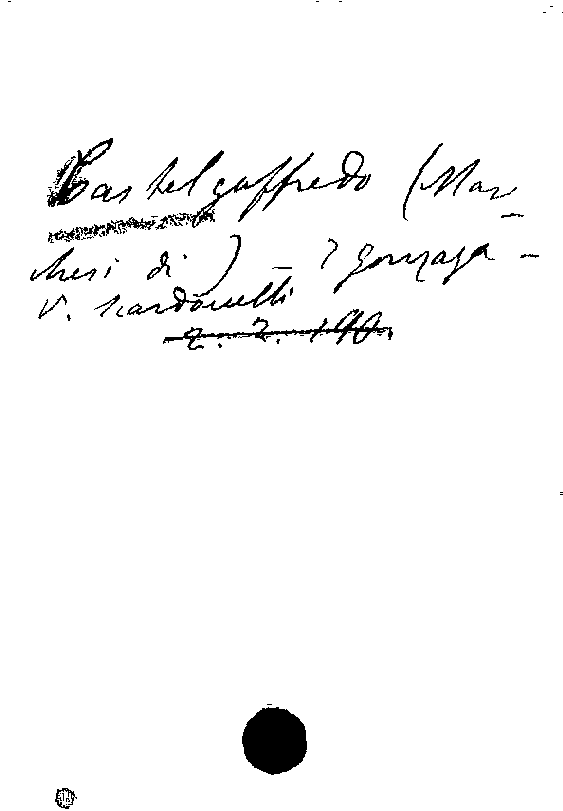 Castelgoffredo (Mar-
chesi di) - i Gonzaga -
V. Scardovelli
2. 2. 190.